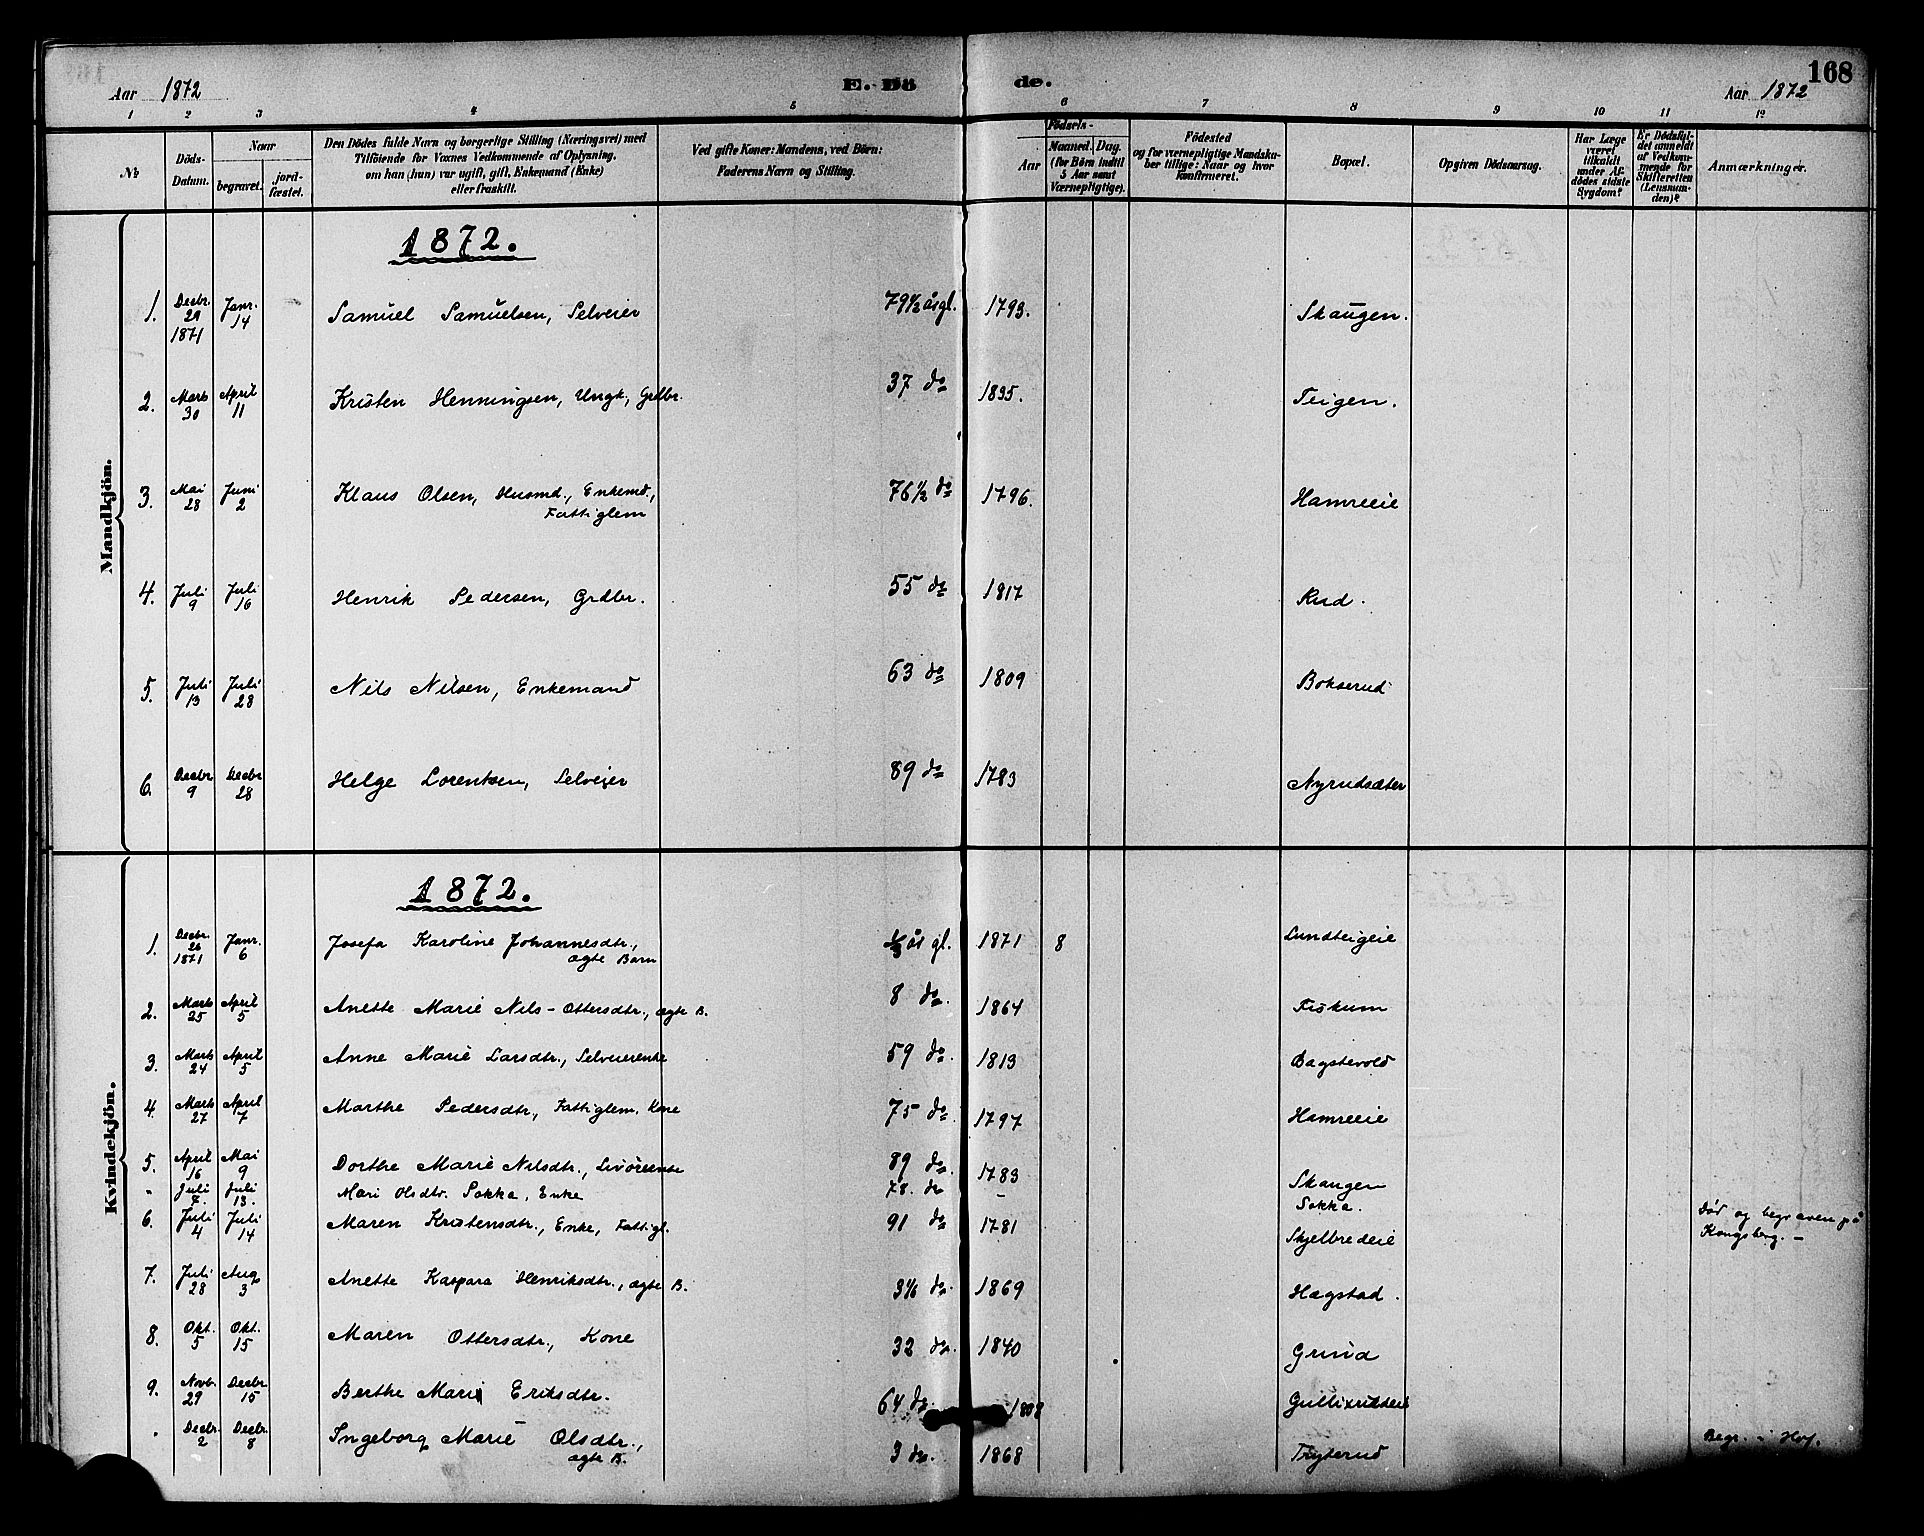 168
Aar 1872
E. Dö de.
Aar 1872
1 2 3 4 5 6 7 8 9 10 11 12
No
Döds-Datum.
Naar
begravet.
jord-fæstet.
Den Dödes fulde Navn og borgerlige Stilling (Næringsvei) med
Tilföiende for Voxnes Vedkommende af Oplysning,
om han (hun) var ugift, gift, Enkemand (Enke)
eller fraskilt.
Ved gifte Koner: Mandens, ved Börn:
Faderens Navn og Stilling.
Födsels-
Aar
Maaned. Dag.
(for Börn indtil
5 Aar samt
Værnepligtige).
Födested
og for værnepligtige Mandska-
ber tillige: Naar og hvor
Konfirmeret.
Bopæl.
Opgiven Dödsaarsag.
Har Læge
været
tilkaldt
under Af-
dödes sidste
Sygdom?
Er Dödsfal-
det anmeldt
af Vedkom-
mende for
Skifteretten
(Lensman-
den)?
Anmærkninger.
Mandkjön.
1872.
1. Decbr. 29 1871 Janr. 14 Samuel Samuelsen, Selveier 79½ år gl. 1793. Skaugen.
2. Marts 30 April 11 Kristen Henningsen, Ungk., Grdbr. 37 do 1835. Teigen.
3. Mai 28 Juni 2 Klaus Olsen, Husmd., Enkemd., 76½ do 1796. Hamreeie
Fattiglem
4. Juli 9 Juli 16 Henrik Pedersen, Grdbr. 55 do 1817 Rud.
5. Juli 13 Juli 28 Nils Nilsen, Enkemand 63 do 1809 Bokserud
6. Decbr 9 Decbr 28 Helge Lorentsen, Selveier 89 do 1783 Nyrudsæter
Kvindekjön.
1872.
1. Decbr. 26 1871 Janr. 6 Josefa Karoline Johannesdtr., år gl. 1871 8 Lundteigeie
ægte Barn
2. Marts 25 April 5 Anette Marie Nils-Ottersdtr., ægte B. 8 do. 1864 Fiskum
3. Marts 24 April 5 Anne Marie Larsdtr., Selveierenke 59 do. 1813 Bagstevold
4. Marts 27 April 7 Marthe Pedersdtr., Fattiglem. Kone 75 do 1797 Hamreeie
5. April 16 Mai 9 Dorthe Marie Nilsdtr., 89 do. 1783 Skaugen
" Juli 8 Juli 13. Mari Olsdtr. Sokka, Enke 78. do – Sokka. Död og begraven på
Kongsberg. –
6. Juli 4 Juli 14 Maren Kristensdtr., Enke, Fattigl. 91 do 1781 Skjelbredeie
7. Juli 28 Aug 3 Anette Kaspara Henriksdtr., ægte B. do. 1869 Hægstad.
8. Okt. 5 Okt. 15 Maren Ottersdtr., Kone 32 do. 1840 Grind
9. Novb. 29 Decbr 15 Berthe Mari Eriksdtr. 64 do. 1808 Gullixrudeie
" Decbr. 2 Decbr. 8 Ingeborg Marie Olsdtr., 3 do. 1868 Tryterud Begr. i Hof.
ægte B.